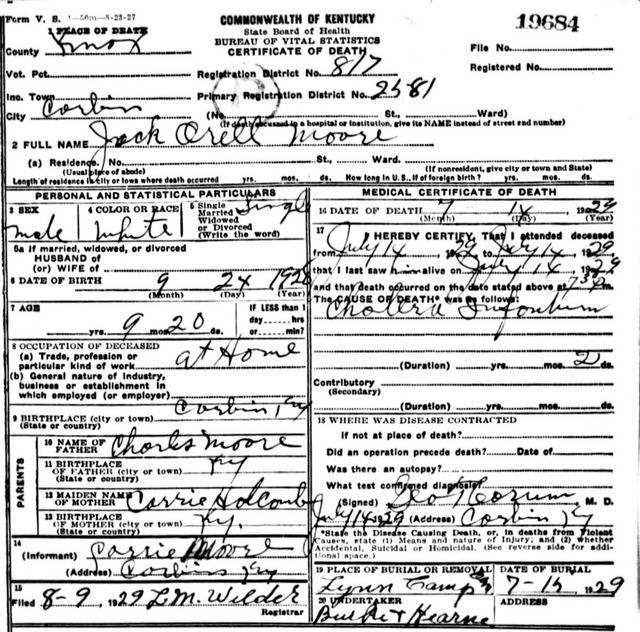 Form V. S. 1-50m-8-23-27
COMMONWEALTH OF KENTUCKY
19684
1 PLACE OF DEATH
State Board of Health
County Knox
BUREAU OF VITAL STATISTICS
File No.
CERTIFICATE OF DEATH
Vot. Pct. Registration District No. 817 Registered No.
Inc. Town Primary Registration District No. 2581
City Corbin (No. St., Ward)
(If death occurred in a hospital or institution, give its NAME instead of street and number)
2 FULL NAME Jack Orell Moore
(a) Residence. No. St., Ward.
(Usual place of abode) (If nonresident, give city or town and State)
Length of residence in city or town where death occurred yrs. mos. ds. How long in U.S., if of foreign birth? yrs. mos. ds.
PERSONAL AND STATISTICAL PARTICULARS
3 SEX male
4 COLOR OR RACE White
5 Single Married Widowed or Divorced (Write the word) Single
5a If married, widowed, or divorced
HUSBAND of
(or) WIFE of
6 DATE OF BIRTH 9 24 1928
(Month) (Day) (Year)
7 AGE IF LESS than 1
day hrs.
yrs. 9 mos. 20 ds. or min.?
8 OCCUPATION OF DECEASED
(a) Trade, profession or
particular kind of work at Home
(b) General nature of industry,
business or establishment in
which employed (or employer)
9 BIRTHPLACE (city or town) Corbin, Ky
(State or country)
PARENTS
10 NAME OF
FATHER Charles Moore
11 BIRTHPLACE
OF FATHER (city or town) Ky
(State or country)
12 MAIDEN NAME
OF MOTHER Carrie Holcomb
13 BIRTHPLACE
OF MOTHER (city or town) Ky.
(State or country)
14
(Informant) Carrie Moore
(Address) Corbin Ky
15
Filed 8-9, 1929 L.M. Wilder
Registrar
MEDICAL CERTIFICATE OF DEATH
16 DATE OF DEATH 7 14 1929
(Month) (Day) (Year)
17
I HEREBY CERTIFY, That I attended deceased
from July 14, 1929, to July 14, 1929
that I last saw him alive on July 14, 1929
and that death occurred on the date stated above at m.
The CAUSE OF DEATH* was as follows:
Cholera Infantum
(Duration) yrs. mos. 2 ds.
Contributory
(Secondary)
(Duration) yrs. mos. ds.
18 WHERE WAS DISEASE CONTRACTED
If not at place of death?
Did an operation precede death? Date of
Was there an autopsy?
What test confirmed diagnosis?
(Signed) M. D.
July 14 1929 (Address) Corbin Ky
*State the Disease Causing Death, or, in deaths from Violent
Causes, state (1) Means and nature of Injury; and (2) whether
Accidental, Suicidal or Homicidal. (See reverse side for addi-
tional space.)
19 PLACE OF BURIAL OR REMOVAL DATE OF BURIAL
Lynn Camp 7-15 1929
20 UNDERTAKER ADDRESS
Hearne